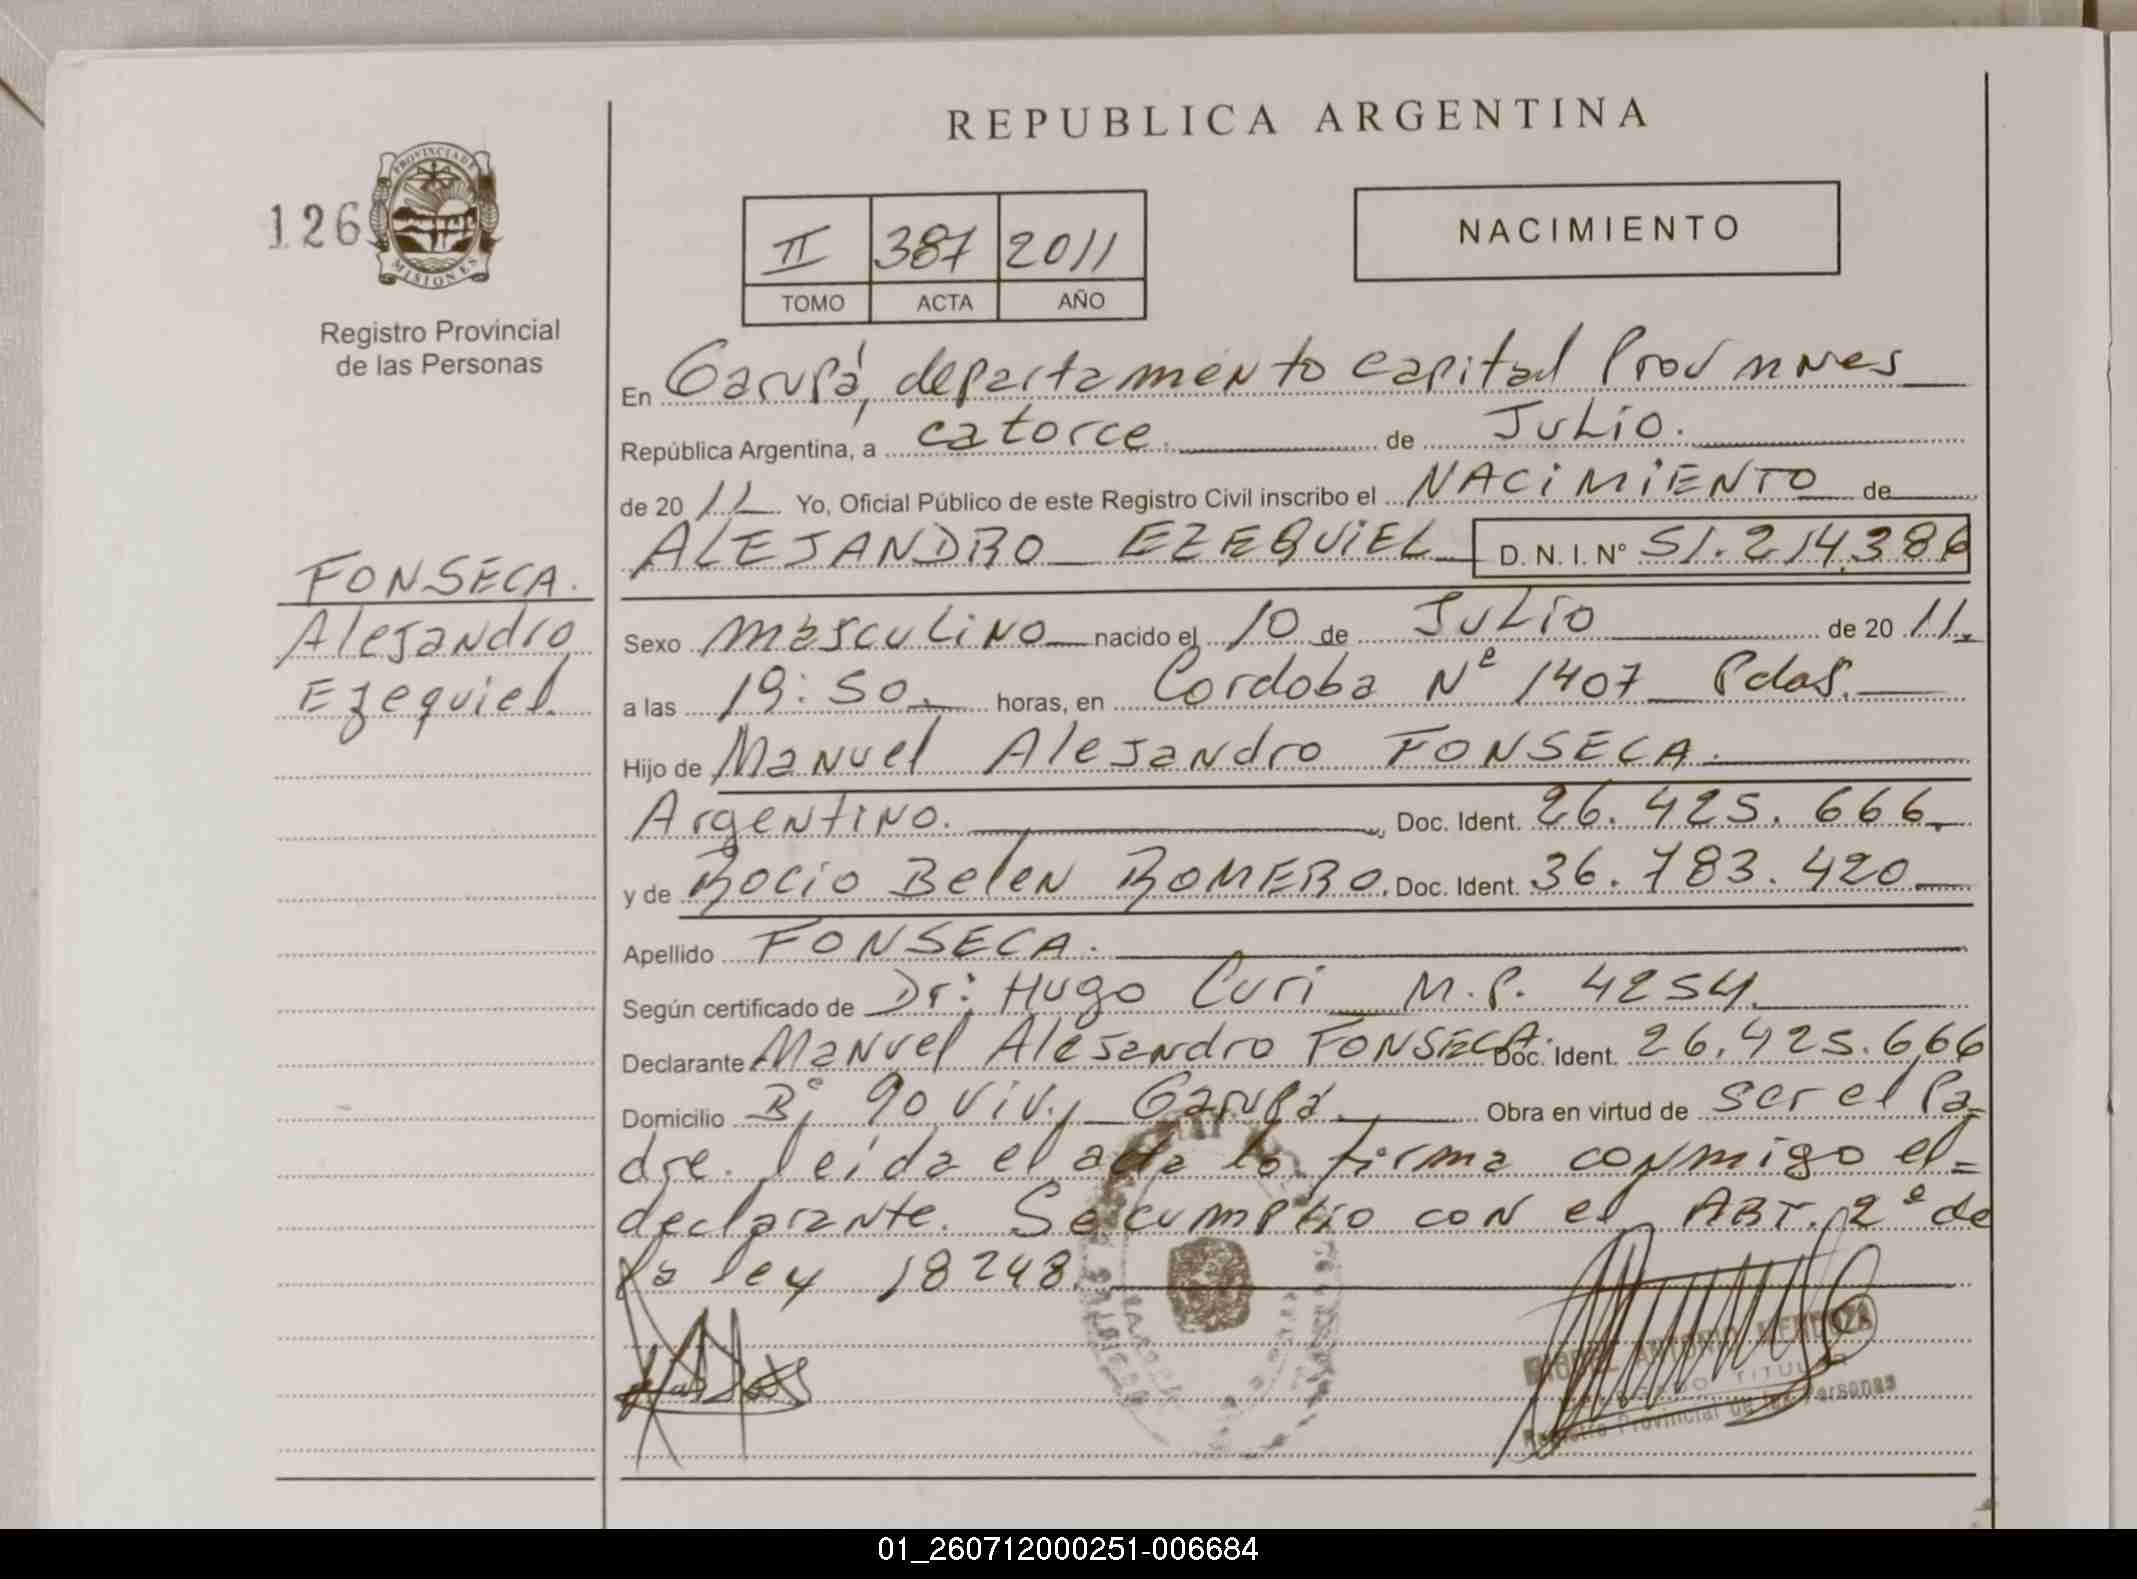 REPUBLICA ARGENTINA
126
PROVINCIA DE
MISIONES
Registro Provincial
de las Personas
II 387 2011
TOMO ACTA AÑO
NACIMIENTO
En Garupá, departamento capital Prov mnes
República Argentina, a catorce. de Julio.
de 20 11 Yo, Oficial Público de este Registro Civil inscribo el NACIMIENTO de
ALEJANDRO EZEQUIEL D. N. I. Nº 51.214.386
FONSECA.
Alejandro
Ezequiel.
Sexo masculino nacido el 10 de Julio de 20 11.
a las 19:50. horas, en Cordoba Nº 1407 Pdas.
Hijo de Manuel Alejandro FONSECA.
Argentino. Doc. Ident. 26.425.666.
y de Rocio Belen ROMERO. Doc. Ident. 36.783.420
Apellido FONSECA.
Según certificado de Dr: Hugo Curi M.P. 4254.
Declarante Manuel Alejandro FONSECA. Doc. Ident. 26.425.666
Domicilio Bº 90 viv., Garupá. Obra en virtud de ser el Pa=
dre. leida el acta la firma conmigo el=
declarante. Se cumplio con el ART. 2º de
la ley 18248.
ANTONIO MENDOZA
TITULAR
Registro Provincial de las Personas
01_260712000251-006684